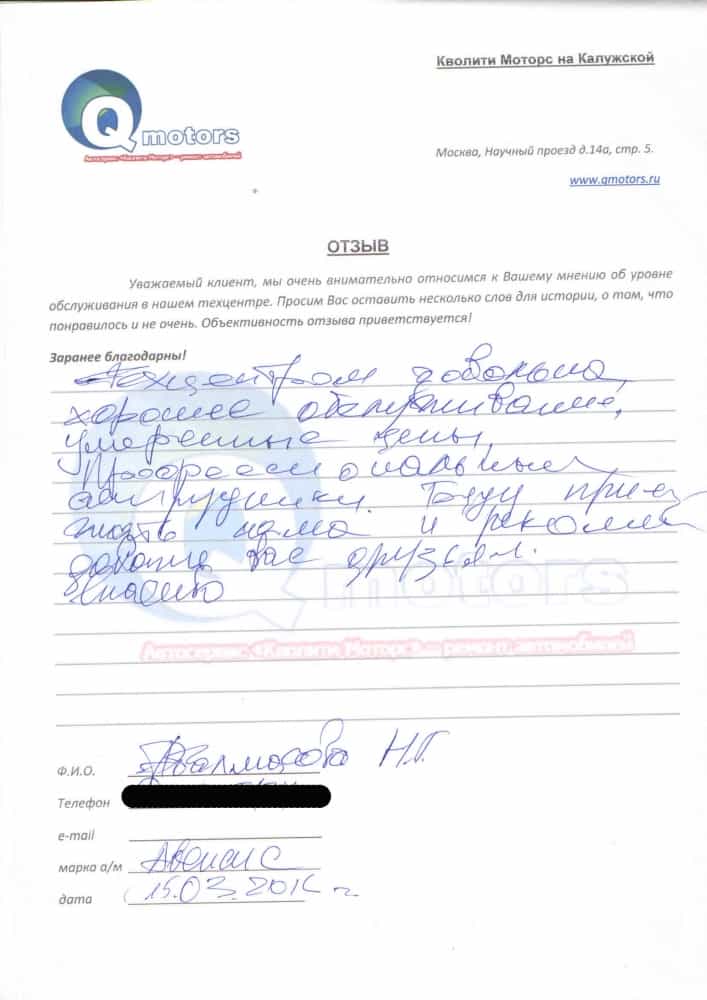 Кволити Моторс на Калужской
Q motors
Автосервис «Кволити Моторс» — ремонт автомобилей
Москва, Научный проезд д.14а, стр. 5.
www.qmotors.ru
ОТЗЫВ
Уважаемый клиент, мы очень внимательно относимся к Вашему мнению об уровне
обслуживания в нашем техцентре. Просим Вас оставить несколько слов для истории, о том, что
понравилось и не очень. Объективность отзыва приветствуется!
Заранее благодарны!
Техцентром довольна,
хорошее обслуживание,
умеренные цены,
Профессиональные
сотрудники. Буду приез
жать к вам и рекомен
довать вас друзьям.
Спасибо
Q motors
Автосервис «Кволити Моторс» — ремонт автомобилей
Ф.И.О. Н.Г.
Телефон
e-mail
марка а/м Авенсис
дата 15.03.2016 г.